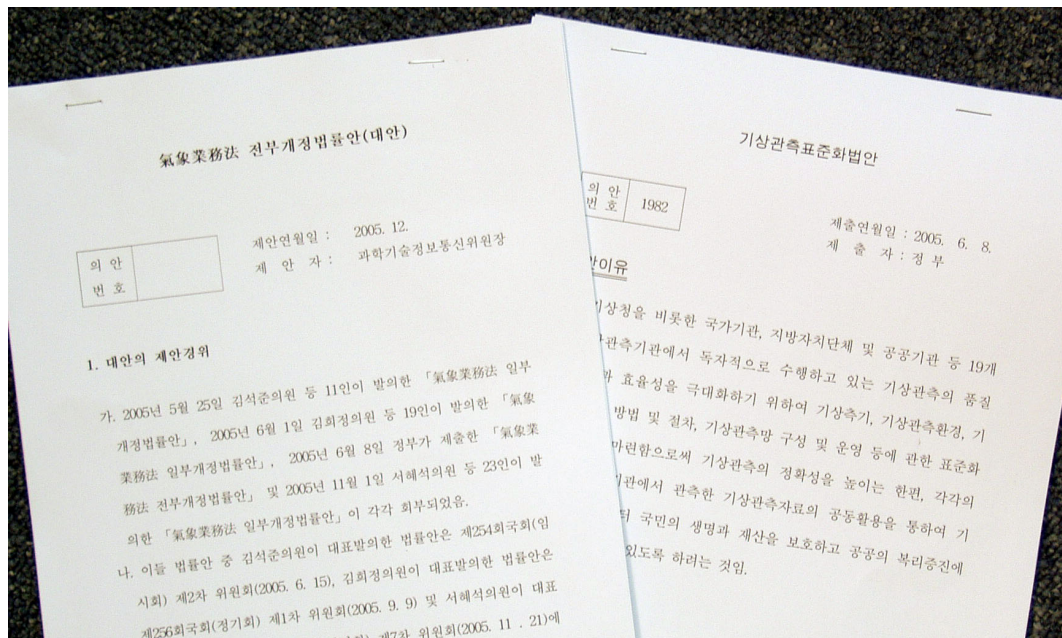 氣象業務法 전부개정법률안(대안)
의 안
번 호
제안연월일 : 2005. 12.
제 안 자 : 과학기술정보통신위원장
1. 대안의 제안경위
가. 2005년 5월 25일 김석준의원 등 11인이 발의한 「氣象業務法 일부
개정법률안」, 2005년 6월 1일 김희정의원 등 19인이 발의한 「氣象
業務法 일부개정법률안」, 2005년 6월 8일 정부가 제출한 「氣象業
務法 전부개정법률안」 및 2005년 11월 1일 서혜석의원 등 23인이 발
의한 「氣象業務法 일부개정법률안」이 각각 회부되었음.
나. 이들 법률안 중 김석준의원이 대표발의한 법률안은 제254회국회(임
시회) 제2차 위원회(2005. 6. 15), 김희정의원이 대표발의한 법률안은
제256회국회(정기회) 제1차 위원회(2005. 9. 9) 및 서혜석의원이 대표
제7차 위원회(2005. 11 . 21)에
기상관측표준화법안
의 안
번 호
1982
제출연월일 : 2005. 6. 8.
제 출 자 : 정 부
안이유
기상청을 비롯한 국가기관, 지방자치단체 및 공공기관 등 19개
관측기관에서 독자적으로 수행하고 있는 기상관측의 품질
과 효율성을 극대화하기 위하여 기상측기, 기상관측환경, 기
방법 및 절차, 기상관측망 구성 및 운영 등에 관한 표준화
마련함으로써 기상관측의 정확성을 높이는 한편, 각각의
기관에서 관측한 기상관측자료의 공동활용을 통하여 기
터 국민의 생명과 재산을 보호하고 공공의 복리증진에
있도록 하려는 것임.